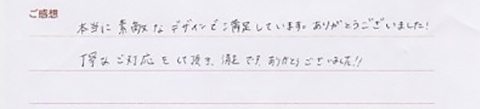 ご感想
本当に素敵なデザインでご満足しています。ありがとうございました!
丁寧なご対応をして頂き、満足です。ありがとうございました!!